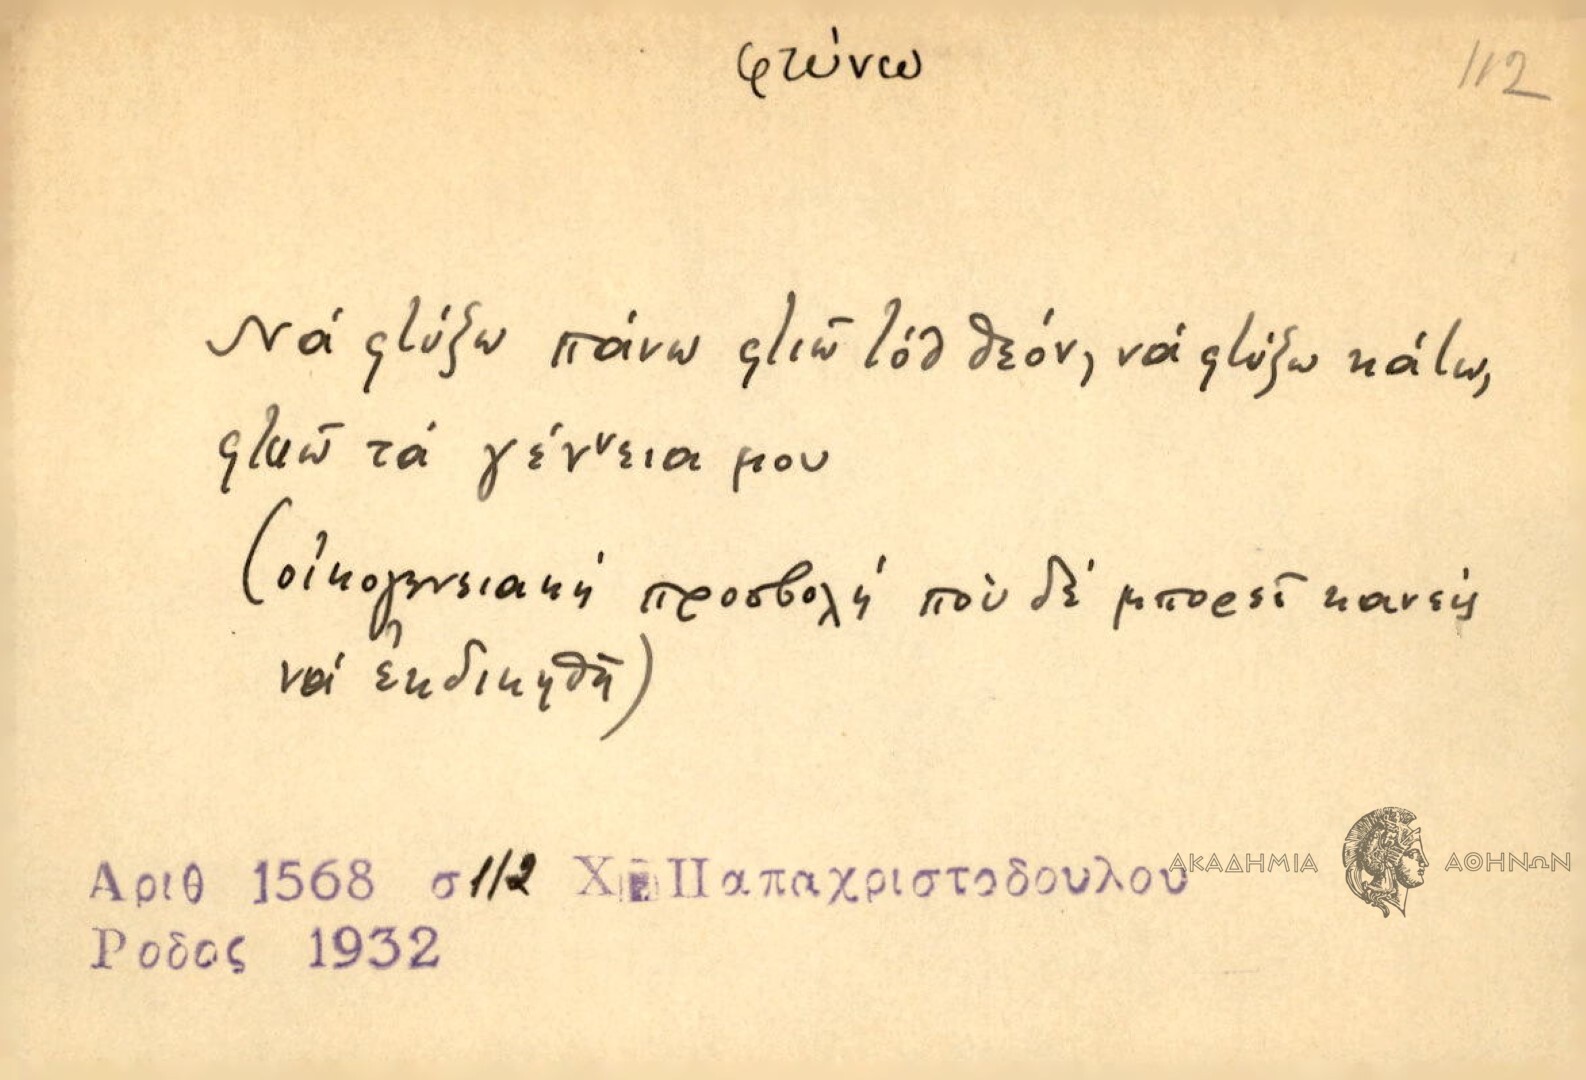 φτύνω
112
Νά φτύξω πάνω φτιῶ τόθ θεόν, νά φτύξω κάτω,
φτιῶ τά γέννεια μου
(οἰκογενειακή προσβολή πού δέ μπορεῖ κανείς
νά ἐκδικηθῆ)
Αριθ 1568 σ 112 Χ Παπαχριστοδουλου
Ροδος 1932
ΑΚΑΔΗΜΙΑ ΑΘΗΝΩΝ